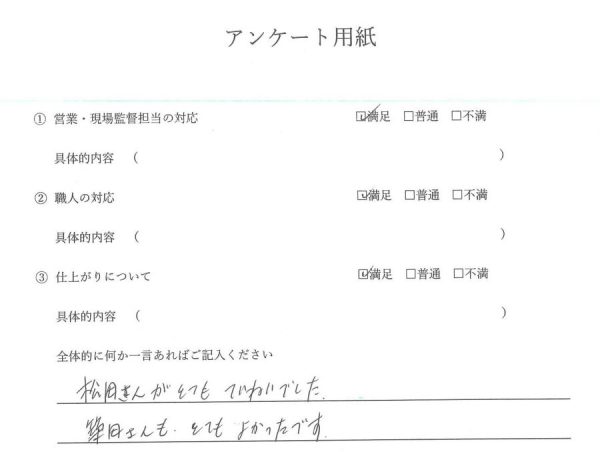 アンケート用紙
① 営業・現場監督担当の対応 ☑満足 □普通 □不満
具体的内容 ( )
② 職人の対応 ☑満足 □普通 □不満
具体的内容 ( )
③ 仕上がりについて ☑満足 □普通 □不満
具体的内容 ( )
全体的に何か一言あればご記入ください
松田さんがとても ていねいでした.
さんも、とても よかったです.